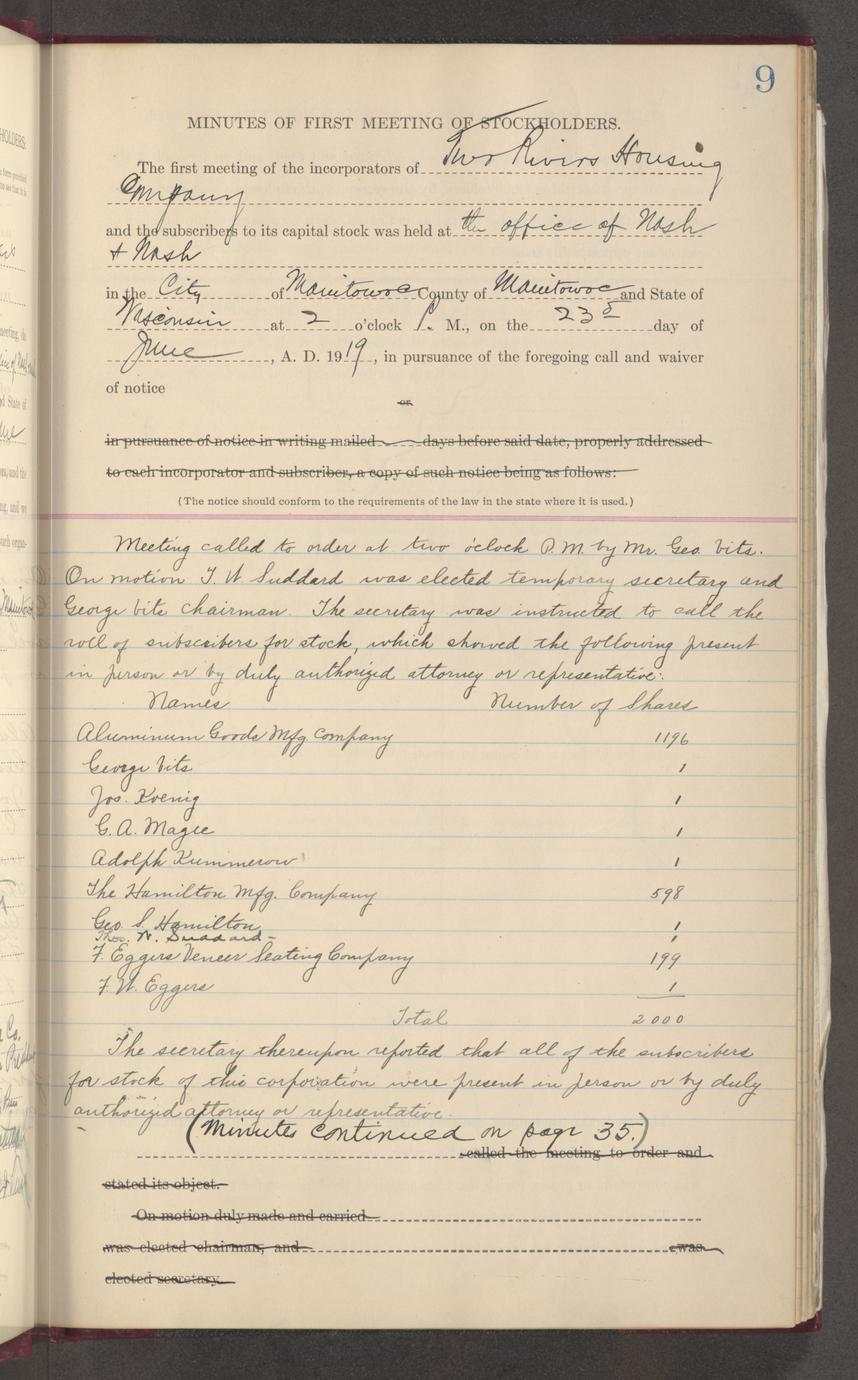 9
MINUTES OF FIRST MEETING OF STOCKHOLDERS.
The first meeting of the incorporators of Two Rivers Housing
Company
and the subscribers to its capital stock was held at the office of Nash
+ Nash
in the City of Manitowoc County of Manitowoc and State of
Wisconsin at 2 o'clock P. M., on the 23d day of
June, A. D. 1919, in pursuance of the foregoing call and waiver
of notice
or
in pursuance of notice in writing mailed days before said date, properly addressed
to each incorporator and subscriber, a copy of such notice being as follows:
(The notice should conform to the requirements of the law in the state where it is used.)
Meeting called to order at two o'clock P.M. by Mr. Geo. Vits.
On motion T. W. Suddard was elected temporary secretary and
George Vits chairman. The secretary was instructed to call the
roll of subscribers for stock, which showed the following present
in person or by duly authorized attorney or representative:
Names Number of Shares
Aluminum Goods Mfg Company 1196
George Vits 1
Jos. Koenig 1
G. A. Magee 1
Adolph Kummerow 1
The Hamilton Mfg. Company 598
Geo. S. Hamilton 1
Thos. W. Suddard - 1
F. Eggers Veneer Seating Company 199
F. W. Eggers 1
Total 2000
The secretary thereupon reported that all of the subscribers
for stock of this corporation were present in person or by duly
authorized attorney or representative.
(Minutes continued on page 35.)
called the meeting to order and
stated its object.
On motion duly made and carried
was elected chairman, and was
elected secretary.